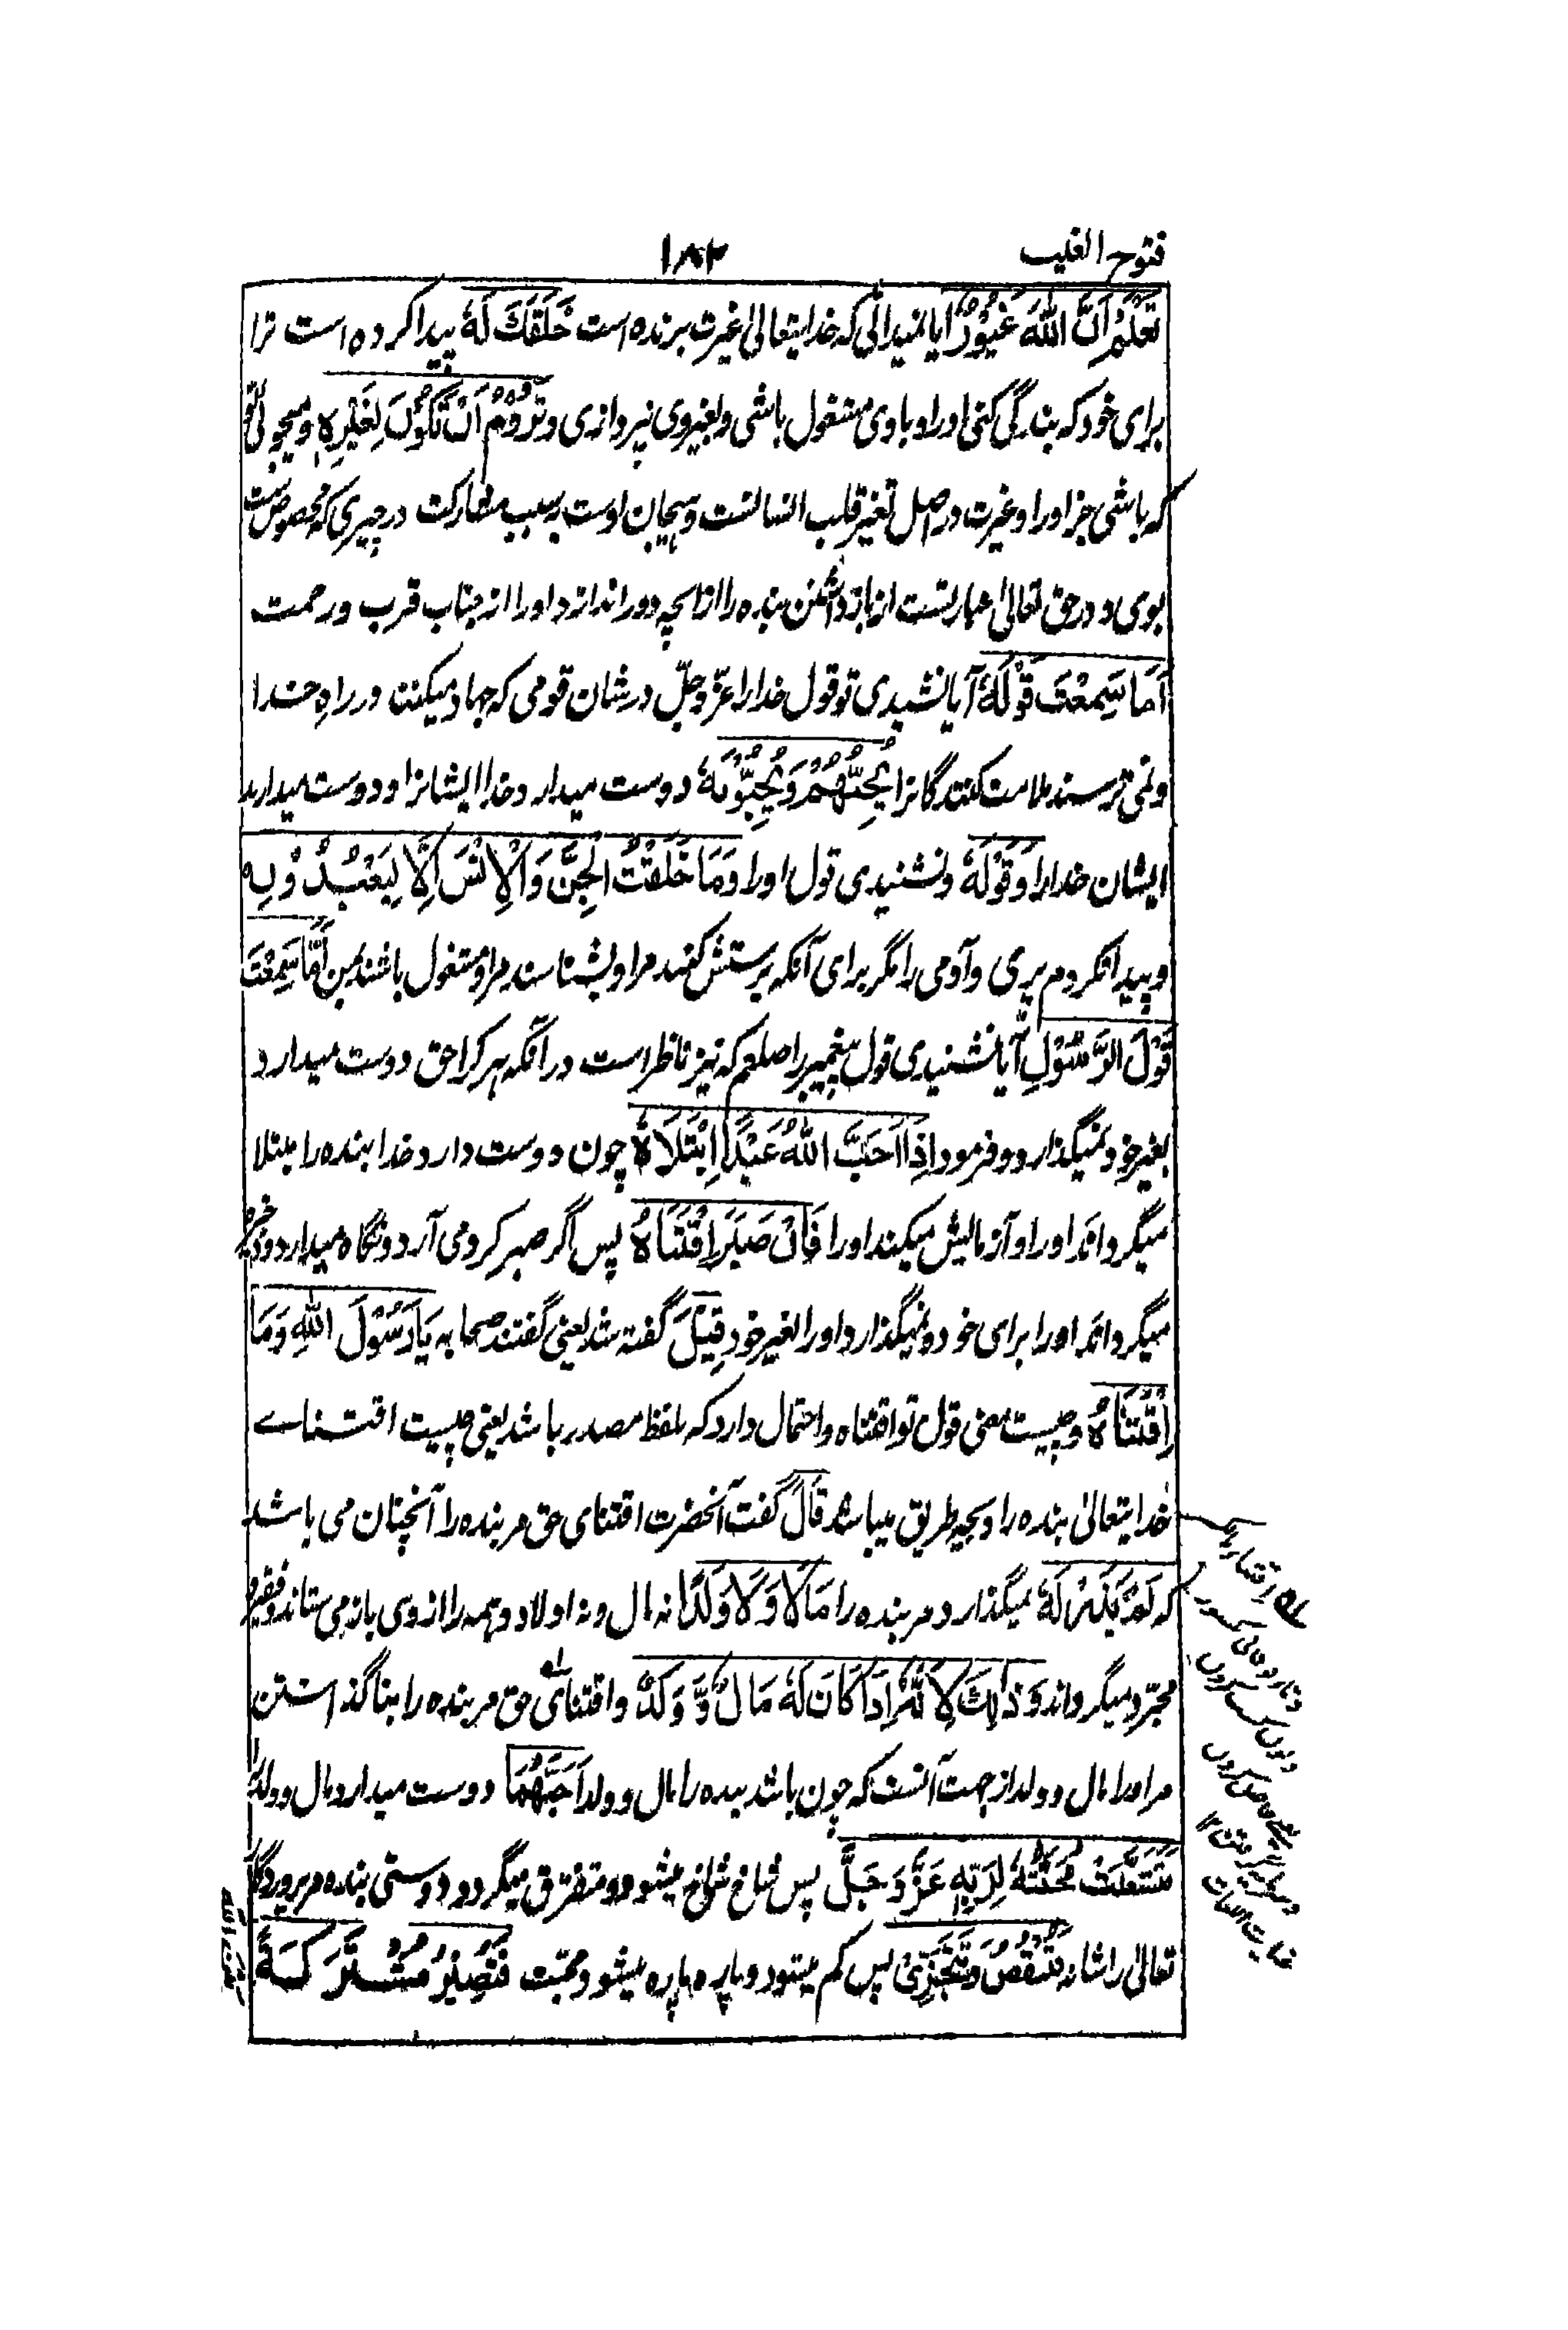 فتوح الغیب
۱۸۲
تَعْلَمْ اَنَّ اللّٰهَ غَيُوْرٌ آیا نمیدانی که خدایتعالیٰ غیرت برنده است خَلَقَكَ لَهٗ پیدا کرده است ترا
برای خود که بندگی کنی او را و باوی مشغول باشی و بغیر وی نپردازی وَتَرُوْمُ اَنْ تَكُوْنَ لِغَيْرِهٖ و میجوئی تو
که باشی جز او را و غیرت در اصل تغیر قلب انسانست و هیجان اوست بسبب مشارکت در چیزی که مخصوص ست
بوی و در حق تعالیٰ عبارتست از باز داشتن بنده را از انچه دور اندازد او را از جناب قرب و رحمت
اَمَا سَمِعْتَ قَوْلَهٗ آیا نشنیدی تو قول خدا را عزّ و جلّ در شان قومی که جهاد میکنند در راهِ خدا
و نمی ترسند ملامت کنندگانرا يُحِبُّهُمْ وَيُحِبُّوْنَهٗ دوست میدارد خدا ایشانرا و دوست میدارند
ایشان خدا را وَقَوْلَهٗ و نشنیدی قول او را وَمَا خَلَقْتُ الْجِنَّ وَالْاِنْسَ اِلَّا لِيَعْبُدُوْنِ
و پیدا نکردم پری و آدمی را مگر برای آنکه پرستش کنند مرا و بشناسند مرا و مشغول باشند بمن اَمَا سَمِعْتَ
قَوْلَ الرَّسُوْلِ آیا نشنیدی قول پیغمبر را صلعم که نیز ناظر است در آنکه هر کرا حق دوست میدارد
بغیر خود نمیگذارد و فرمود اِذَا اَحَبَّ اللّٰهُ عَبْدًا اِبْتَلَاهُ چون دوست دارد خدا بنده را مبتلا
میگرداند او را و آزمایش میکند او را فَاِنْ صَبَرَ اِقْتَنَاهُ پس اگر صبر کرد می آرد و نگاه میدارد و ذخیره
میگرداند او را برای خود و نمیگذارد او را لغیر خود قِيْلَ گفته شد یعنی گفتند صحابه يَا رَسُوْلَ اللّٰهِ وَمَا
اِقْتَنَاهُ و چیست معنی قول تو اقتناه و احتمال دارد که بلفظ مصدر باشد یعنی چیست اقتنای
خدایتعالیٰ بنده را و بچه طریق میباشد قَالَ گفت آنحضرت اقتنای حق مر بنده را آنچنان می باشد
که لَمْ يَكُنْ لَهٗ نمیگذارد مر بنده را مَالًا وَّلَا وَلَدًا نه مال و نه اولاد و همه را از وی باز می ستاند و فقیر و
مجرّد میگرداند وَذٰلِكَ لِاَنَّهٗ اِذَا كَانَ لَهٗ مَالٌ وَّ وَلَدٌ و اقتنای حق مر بنده را بناگذاشتن
مر او را مال و ولد از جهت آنست که چون باشد بنده را مال و ولد اَحَبَّهُمَا دوست میدارد مال و ولد را
فَتَشَعَّبَتْ مَحَبَّتُهٗ لِرَبِّهٖ عَزَّ وَجَلَّ پس شاخ شاخ میشود و متفرق میگردد دوستی بنده مر پروردگار
تعالیٰ را شانه فَتَنْقُصُ وَتَتَجَزّٰى پس کم میشود و پاره پاره میشود محبّت فَتَصِيْرُ مُشْتَرَكَةً